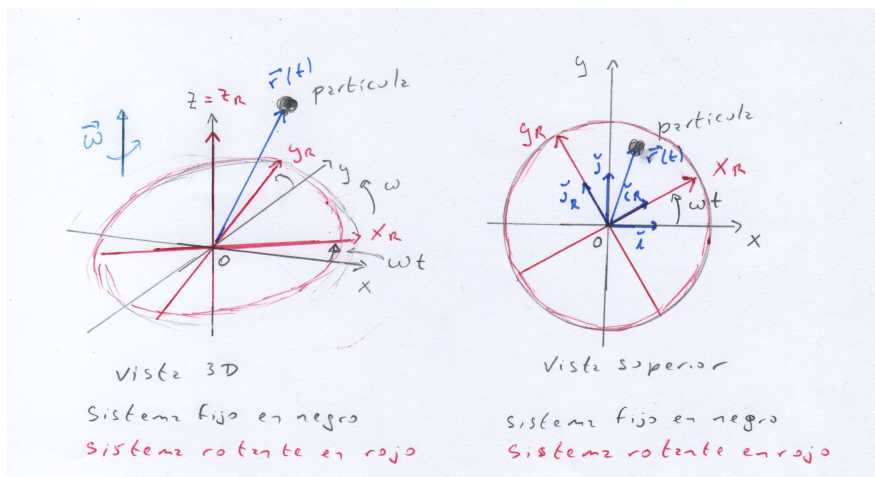 r⃗(t)
partícula
z = z_R
ω⃗
y_R
y
ω
x_R
ωt
x
O
Vista 3D
Sistema fijo en negro
Sistema rotante en rojo
y
partícula
y_R
r⃗(t)
x_R
ǰ
ǰ_R
ǐ_R
ωt
O
ǐ
x
Vista superior
Sistema fijo en negro
Sistema rotante en rojo